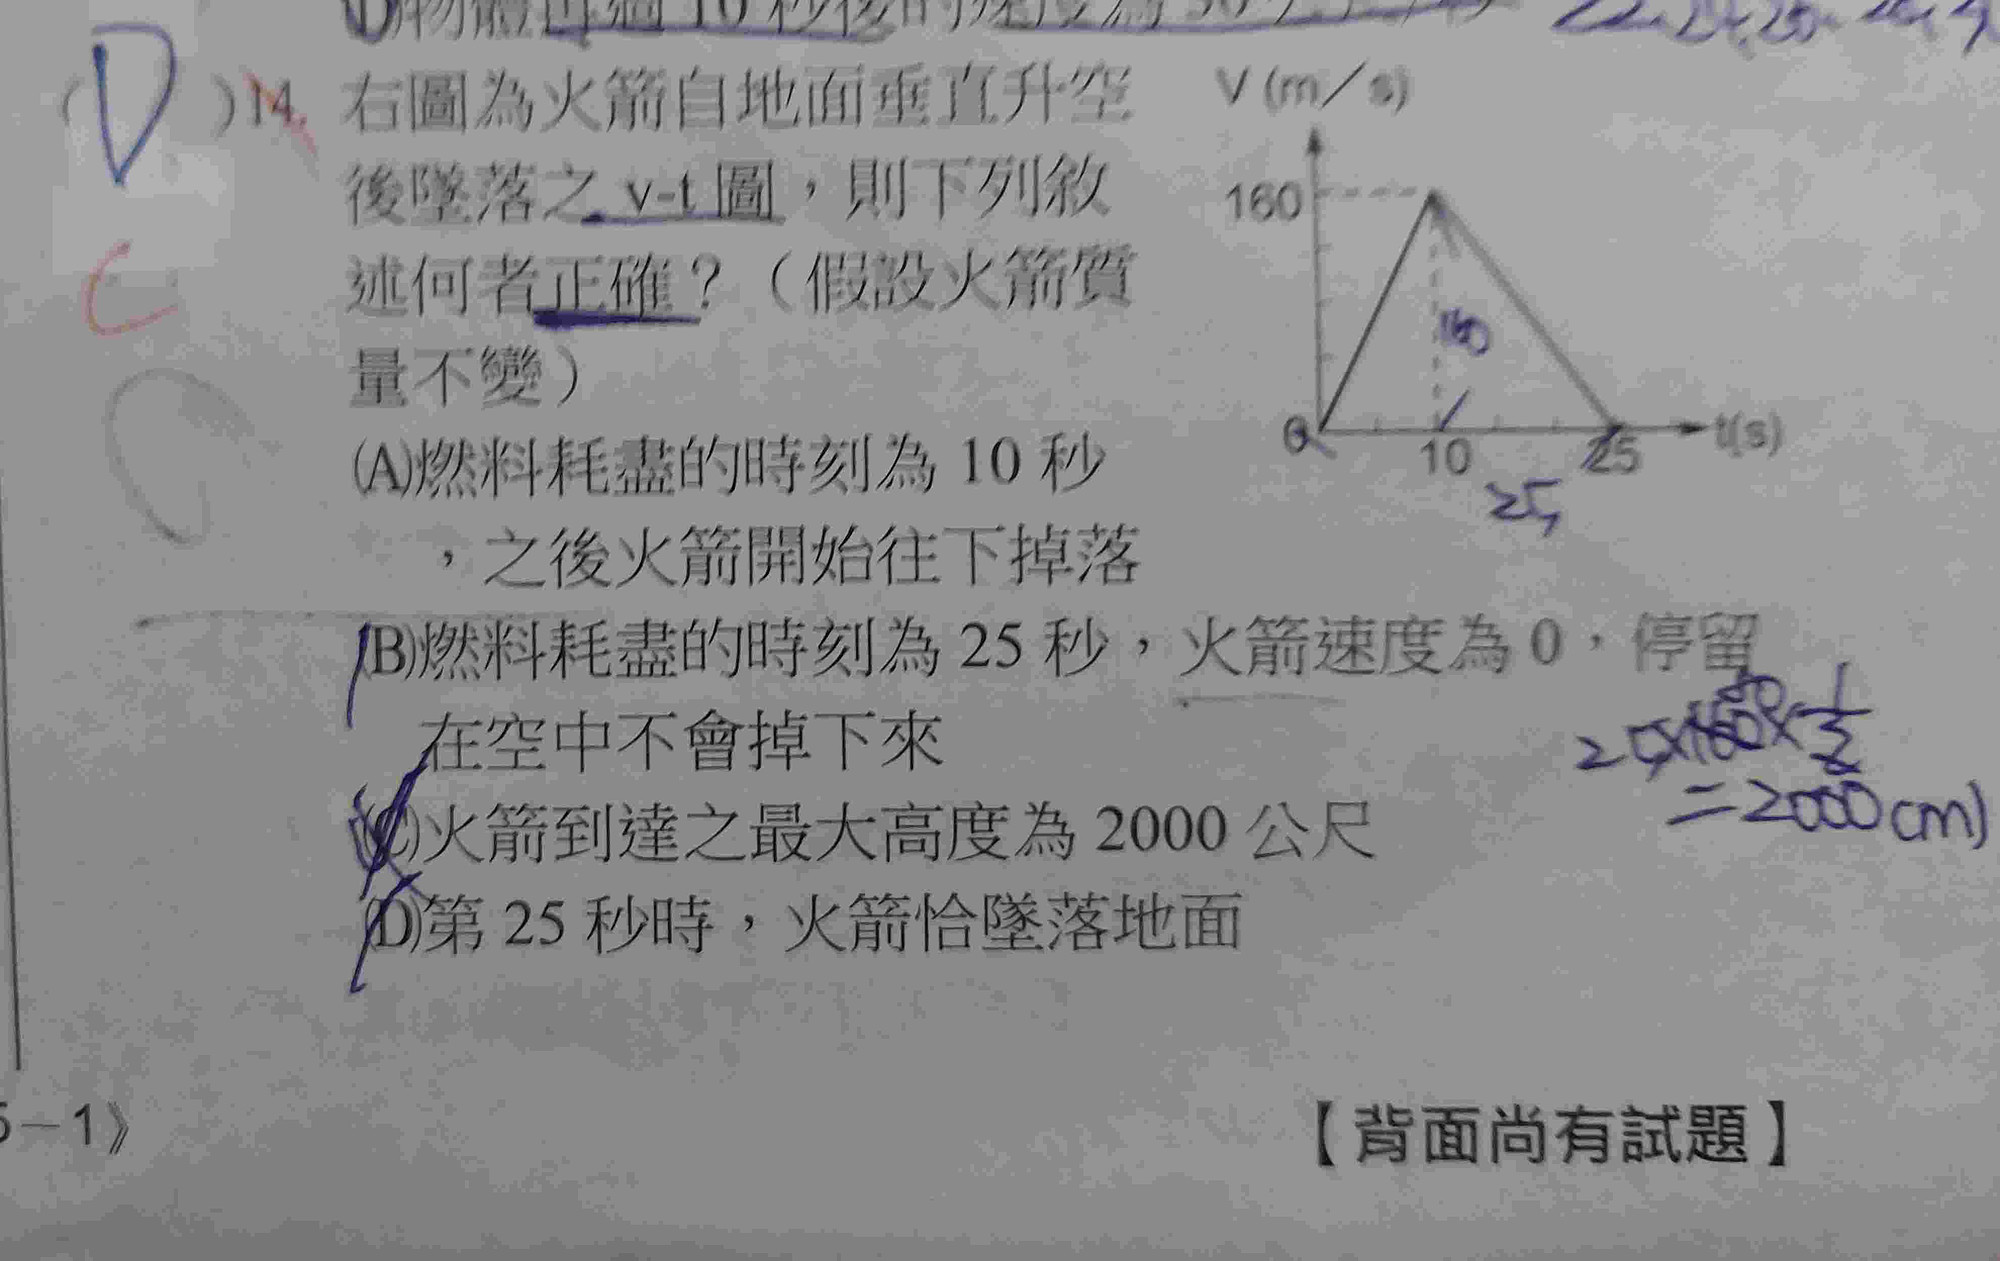 (D)物體再過10秒後的速度為30
D
( )14. 右圖為火箭自地面垂直升空
後墜落之 v-t 圖，則下列敘
述何者正確？（假設火箭質
量不變）
C
V (m／s)
160
160
0
10
25
t(s)
25
(A)燃料耗盡的時刻為 10 秒
，之後火箭開始往下掉落
(B)燃料耗盡的時刻為 25 秒，火箭速度為 0，停留
在空中不會掉下來
(C)火箭到達之最大高度為 2000 公尺
(D)第 25 秒時，火箭恰墜落地面
80
25×160×1/2
=2000(m)
5－1》
【背面尚有試題】